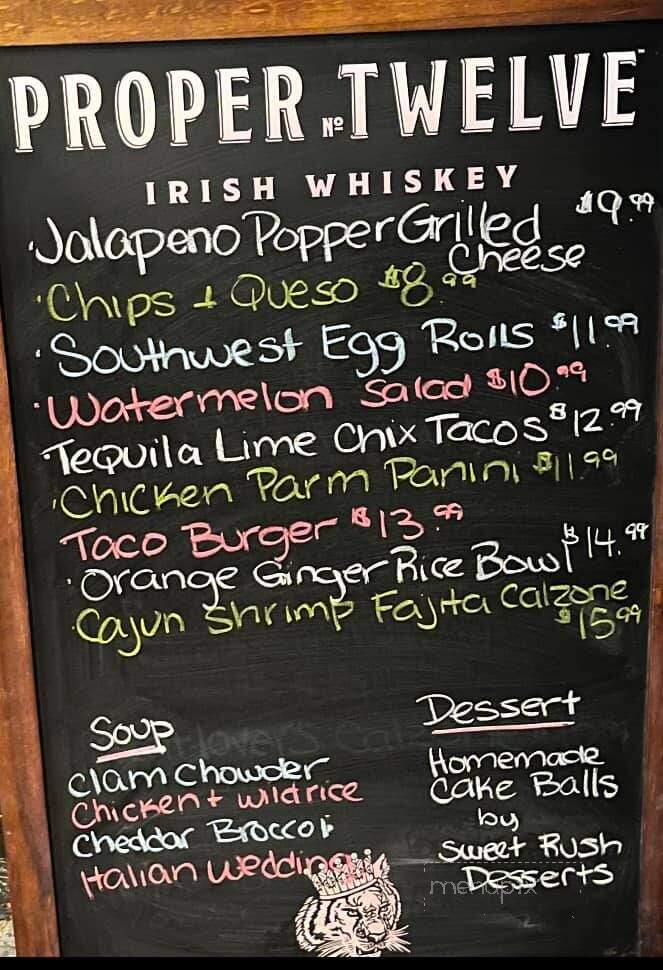 PROPER No. TWELVE™
IRISH WHISKEY
·Jalapeno Popper Grilled $9.99
Cheese
·Chips + Queso $8.99
·Southwest Egg Rolls $11.99
·Watermelon Salad $10.99
Tequila Lime Chix Tacos $12.99
·Chicken Parm Panini $11.99
Taco Burger $13.99
·Orange Ginger Rice Bowl $14.99
·Cajun Shrimp Fajita Calzone
$15.99
Soup
Clam Chowder
Chicken + wild rice
Cheddar Broccoli
Italian Wedding
Dessert
Homemade
Cake Balls
by
Sweet Rush
Desserts
menupix